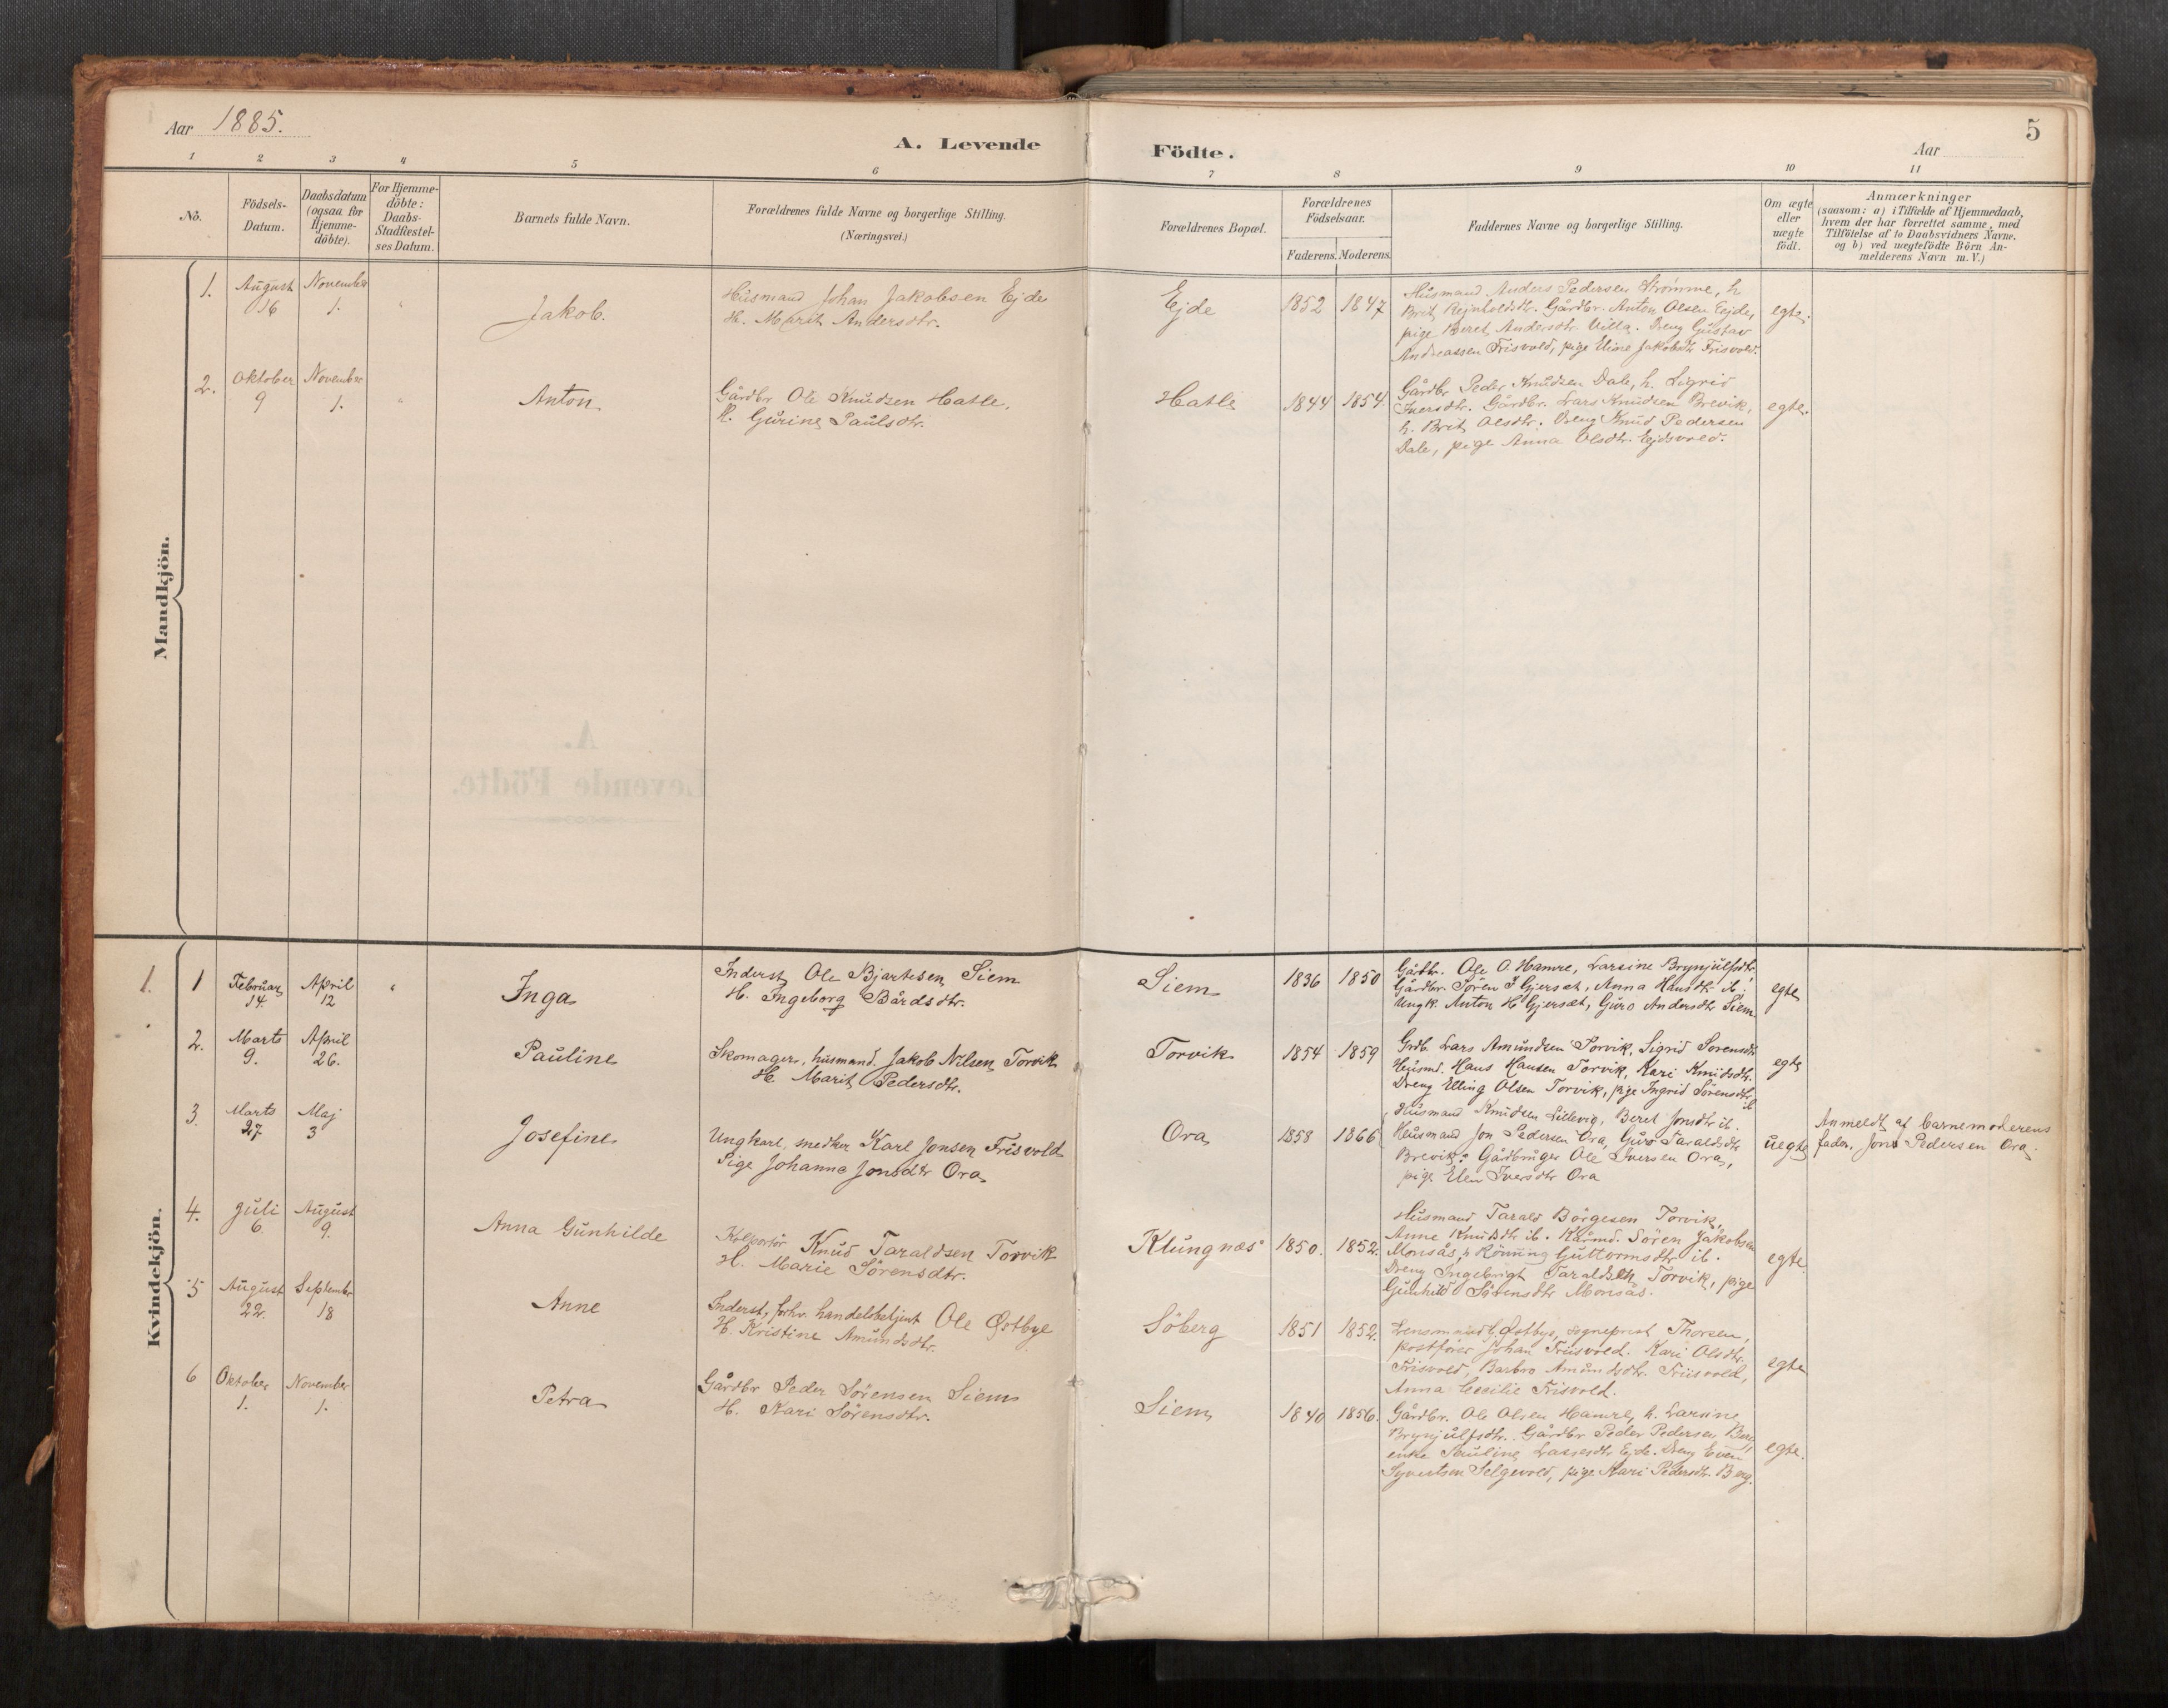 Aar 1885.
A. Levende Födte.
Aar
5
1 2 3 4 5 6 7 8 9 10 11
No.
Födsels-
Datum.
Daabsdatum
(ogsaa for
Hjemme-
döbte).
For Hjemme-
döbte:
Daabs-
Stadfæstel-
ses Datum.
Barnets fulde Navn.
Forældrenes fulde Navne og borgerlige Stilling.
(Næringsvei.)
Forældrenes Bopæl.
Forældrenes
Födselsaar.
Faderens. Moderens.
Faddernes Navne og borgerlige Stilling.
Om ægte
eller
uægte
födt.
Anmærkninger
(saasom: a) i Tilfælde af Hjemmedaab,
hvem der har forrettet samme, med
Tilföielse af to Daabsvidners Navne,
og b) ved uægtefödte Börn An-
melderens Navn m. V.)
Mandkjön.
1.
August
16
November
1.
"
Jakob.
Husmand Johan Jakobsen Ejde
H. Marit Andersdtr.
Ejde
1852
1847
Husmand Anders Pedersen Strømme, h
Brit Rejnholdsdtr. Gårdbr. Anton Olsen Eejde,
pige Beret Andersdtr. Villa. Dreng Gustav
Andreassen Frisvold, pige Eline Jakobsdtr Frisvold.
egte.
2.
Oktober
9
November
1.
"
Anton
Gårdbr Ole Knudsen Hatle,
H. Gurine Paulsdtr.
Hatle
1844
1854.
Gårdbr Peder Knudsen Dale, h. Sigrid
Iversdtr. Gårdbr. Lars Knudsen Brevik,
h. Brit Olsdtr. Dreng Knud Pedersen
Dale, pige Anna Olsdtr. Ejdsvold.
egte.
Kvindekjön.
1.
1
Februar
14.
April
12
"
Inga
Inderst Ole Bjartesen Siem
H. Ingeborg Bårdsdtr.
Siem
1836
1850
Gårdbr. Ole O. Hamre, Larsine Brynjulfsdtr,
Gårdbr. Sören I Gjersæt, Anna Hansdtr ib.
Ungk. Anton H Gjersæt, Guro Andersdtr Siem
egte
2.
Marts
9.
April
26.
Pauline
Skomager, husmand. Jakob Nilsen Torvik
H. Marit Pedersdtr.
Torvik
1854
1859
Grdb. Lars Amundsen Torvik, Sigrid Sorensdtr
Husmd. Hans Hansen Torvik, Kari Knudsdtr.
Dreng Elling Olsen Torvik, pige Ingrid Sörensdtr.
ib
egte
3.
Marts
27.
Maj
3
Josefine
Ungkarl, snedker Karl Jonsen Frisvold
Pige Johanna Jonsdtr Ora
Ora
1858
1866
Husmand Knudsen Lillevig, Beret Jonsdtr ib.
Husmand Jon Pedersen Ora, Guro Taraldsdtr
Brevik. Gårdbruger Ole Iversen Ora,
pige Elen Iversdtr Ora
uegte
Anmeldt af barnemoderens
fader, Jon Pedersen Ora.
4.
Juli
6.
August
9.
Anna Gunhilde
Kolportör Knud Taraldsen Torvik
H. Marie Sörensdtr.
Klungnæs
1850.
1852.
Husmand Tarald Börgesen Torvik,
Anne Knudsdtr ib. Kårmd. Sören Jakobsen
Monsås, h Rönning Guttormsdtr ib.
Dreng Ingebrigt Taraldsen Torvik, pige
Gunhild Sörensdtr Monsås.
egte.
5
August
22.
September
18
Anne
Inderst, forhv. handelsbetjent Ole Østbye
H. Kristine Amundsdtr.
Söberg
1851
1852.
Lensmand Østbye, sogneprest Thorsen,
postfører Johan Friisvold. Kari Olsdtr.
Frisvold, Barbro Amundsdtr. Friisvold,
Anna Cecilie Frisvold.
egte
6
Oktober
1.
November
1.
Petra
Gårdbr Peder Sörensen Siem
H. Kari Sörensdtr.
Siem
1840
1856.
Gårdbr. Ole Olsen Hamre, h. Larsine
Brynjulfsdtr. Gårdbr Peder Pedersen Berg,
enke Pauline Lassesdtr Ejde. Dreng Even
Syvertsen Selgevold, pige Kari Pedersdtr. Berg.
egte.